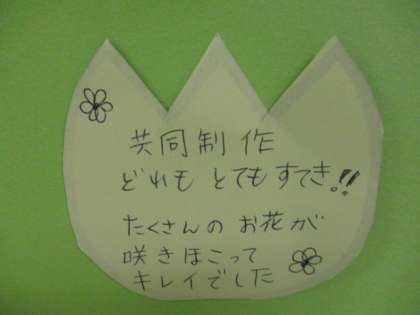 共同制作
どれも とてもすてき!!
たくさんの お花が
咲きほこって
キレイでした